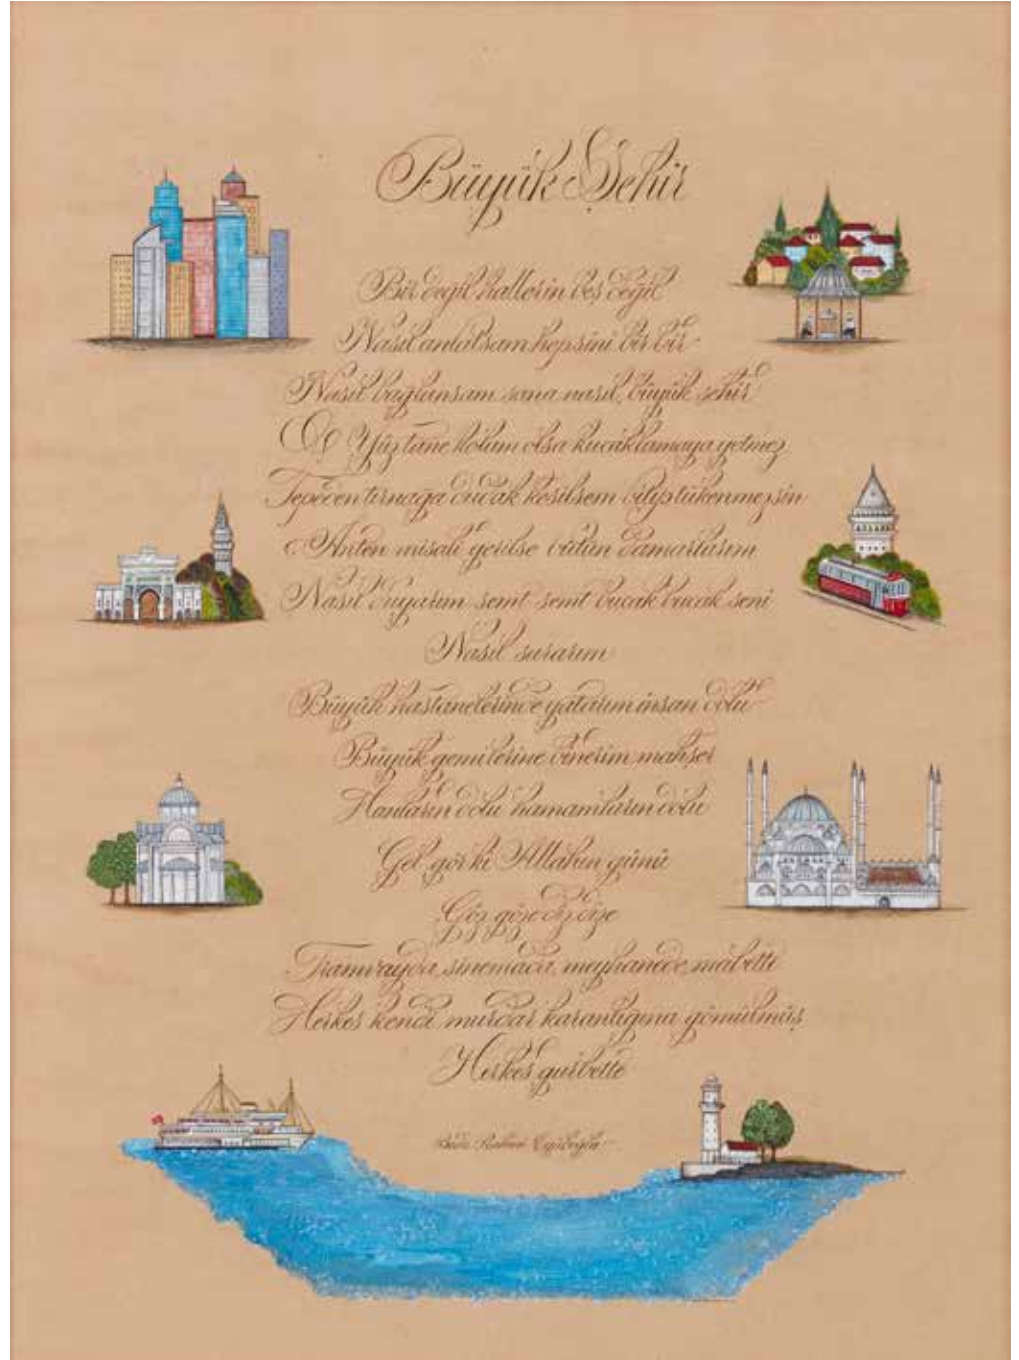 Büyük Şehir
Bir değil hallerin beş değil
Nasıl anlatsam hepsini bir bir
Nasıl bağlansam sana nasıl, büyük şehir
Yüz tane kolum olsa kucaklamaya yetmez
Tepeden tırnağa dudak kesilsem öpüp tükenmezsin
Anten misali gerilse bütün damarlarım
Nasıl duyarım semt semt bucak bucak seni
Nasıl sararım
Büyük hastanelerinde yatarım insan dolu
Büyük gemilerine binerim mahşer
Hanların dolu hamamların dolu
Gel gör ki Allahın günü
Göz göze diz dize
Tramvayda, sinemada, meyhanede, mabette
Herkes kendi murdar karanlığına gömülmüş
Herkes gurbette
Bedri Rahmi Eyüboğlu